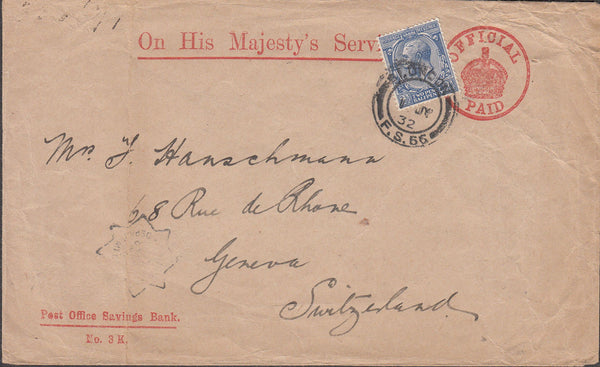 On His Majesty's Serv
OFFICIAL
PAID
LONDON
32
F.S. 66
Mr. J. Hanschmann
68 Rue de Rhone
Geneva
Switzerland
Post Office Savings Bank.
No. 3 K.